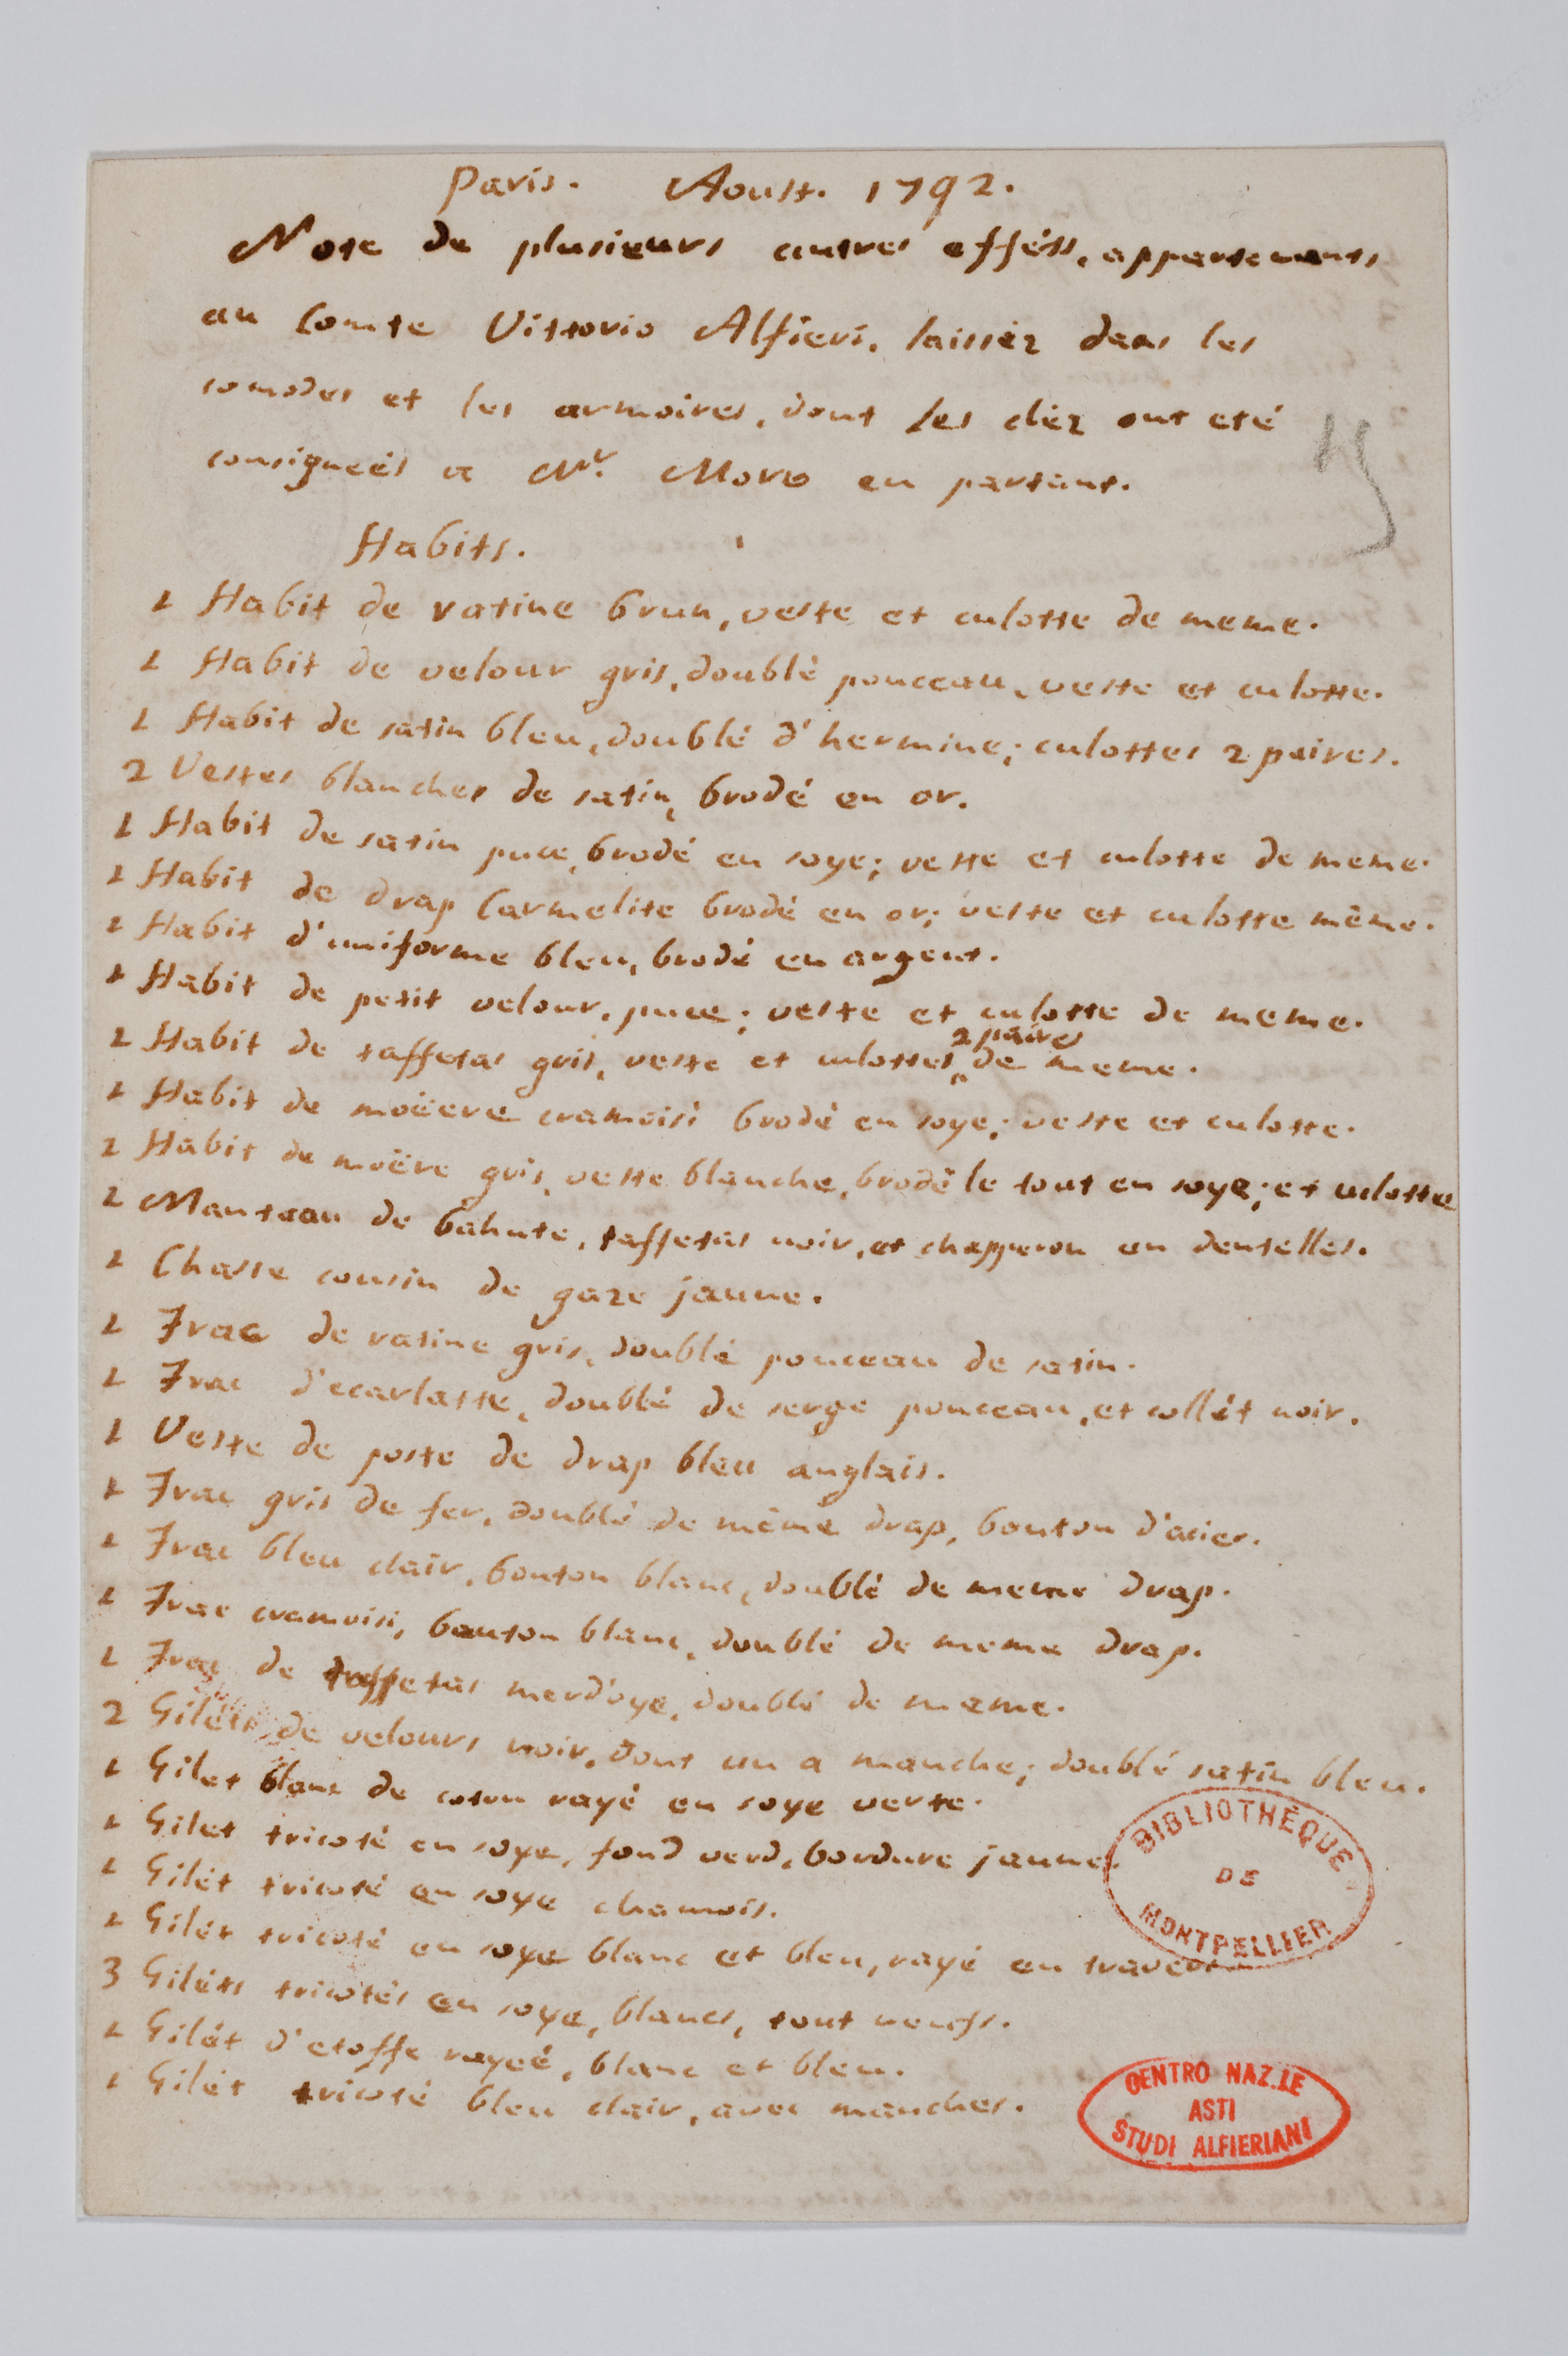 Paris. Aoust. 1792.
Note de plusieurs autres efféts, appartenants
au Comte Vittorio Alfieri, laissèz dans les
comodes et les armoires, dont les clèz ont eté
consigneés a Mr. Moro en partant.
Habits.
1 Habit de ratine brun, veste et culotte de meme.
1 Habit de velour gris, doublé ponceau, veste et culotte.
1 Habit de satin bleu, doublé d'hermine; culottes 2 paires.
2 Vestes blanches de satin, brodé en or.
1 Habit de satin puce, brodé en soye; veste et culotte de meme.
1 Habit de drap Carmelite brodé en or; veste et culotte même.
1 Habit d'uniforme bleu, brodé en argent.
1 Habit de petit velour, puce; veste et culotte de meme.
2 paires
1 Habit de taffetas gris, veste et culottes, de meme.
1 Habit de moëere cramoisi brodé en soye; veste et culotte.
1 Habit de moëre gris, veste blanche, brodé le tout en soye; et culotte
1 Manteau de bahute, taffetas noir, et chapperon en dentelles.
1 Chasse cousin de gaze jaune.
1 Frac de ratine gris, doublé ponceau de satin.
1 Frac d'ecarlatte, doublé de serge ponceau, et collét noir.
1 Veste de poste de drap bleu anglais.
1 Frac gris de fer, doublé de même drap, bouton d'acier.
1 Frac bleu clair, bouton blanc, doublé de meme drap.
1 Frac cramoisi, bouton blanc, doublé de meme drap.
1 Frac de taffetas merd'oye, doublé de meme.
2 Giléts de velours noir, dont un a manche; doublé satin bleu.
1 Gilet blanc de coton rayé en soye verte.
1 Gilet tricoté en soye, fond verd, bordure jaune.
1 Gilét tricoté en soye chamois.
1 Gilét tricoté en soye blanc et bleu, rayé en travers
3 Giléts tricotés en soye, blancs, tout neufs.
1 Gilét d'etoffe rayeé, blanc et bleu.
1 Gilét tricoté bleu clair, avec manches.
BIBLIOTHÈQUE
DE
MONTPELLIER
CENTRO NAZ.LE
ASTI
STUDI ALFIERIANI